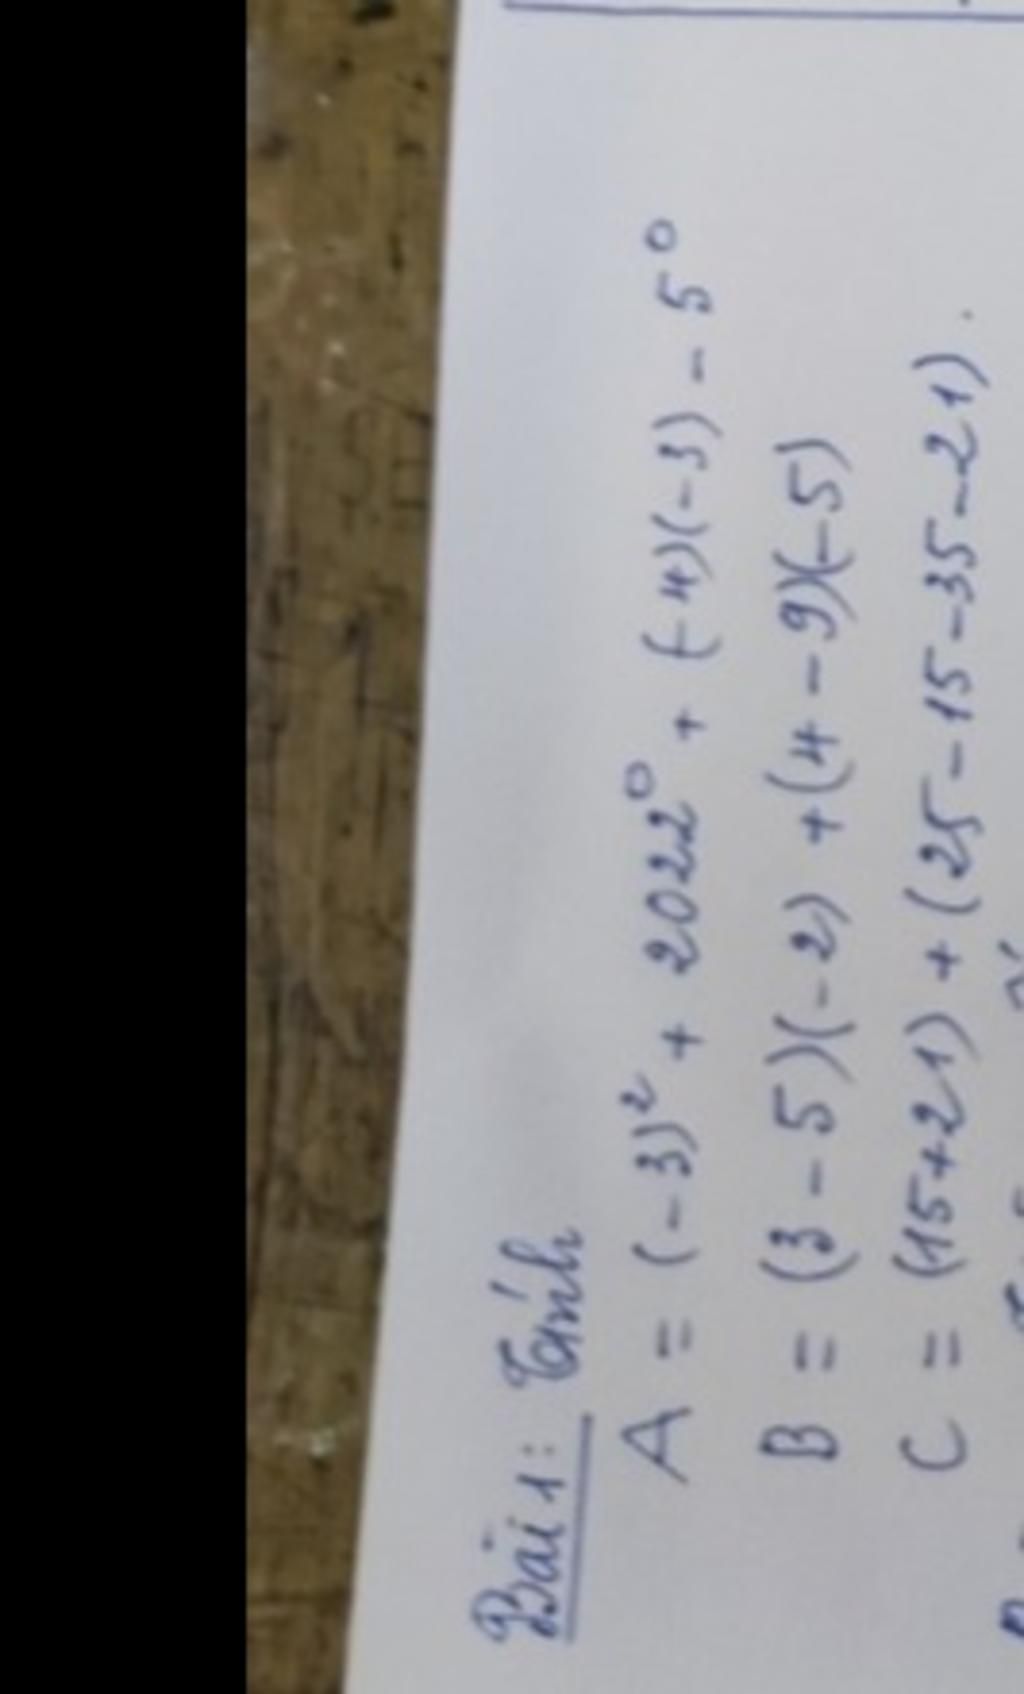 Bài 1: Tính
A = (-3)² + 2022⁰ + (-4)(-3) - 5⁰
B = (3 - 5)(-2) + (4 - 9)(-5)
C = (15+21) + (25-15-35-21).